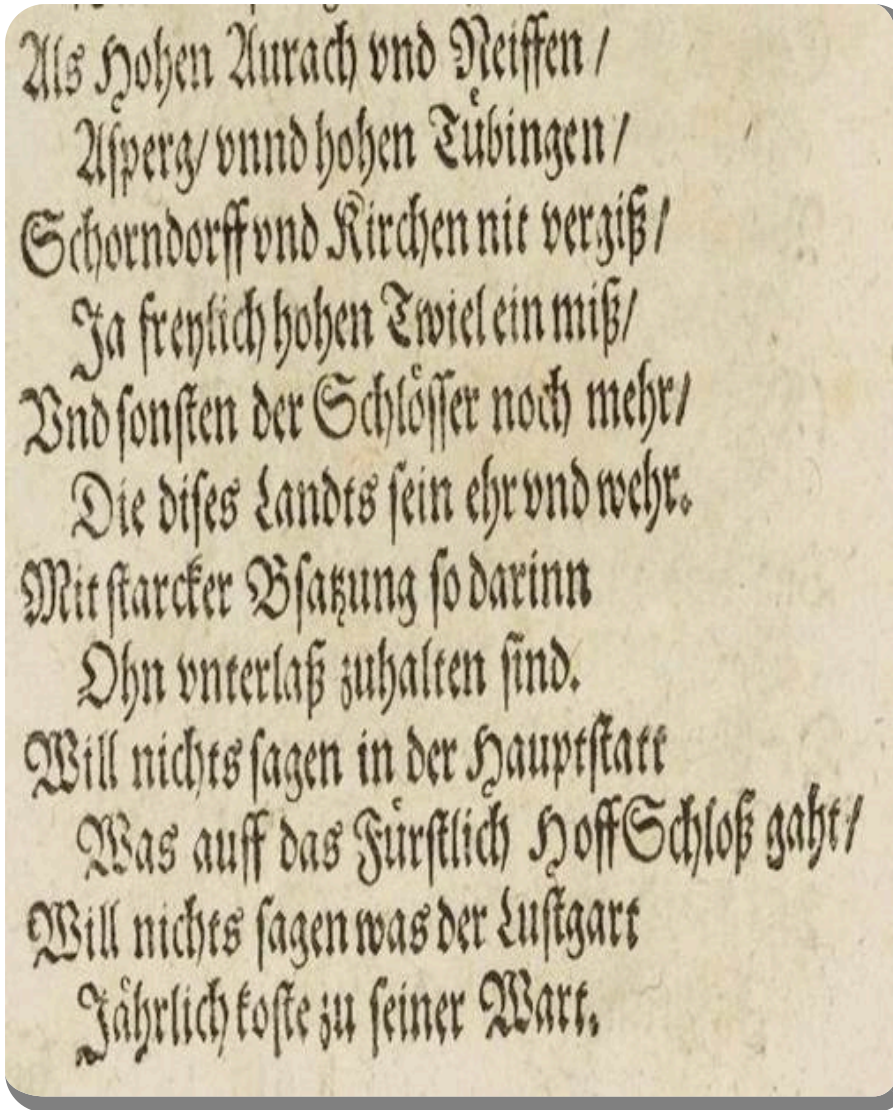 Als Hohen Aurach vnd Neiffen /
Aſperg/ vnnd hohen Tübingen /
Schorndorff vnd Kirchen nit vergiß /
Ja freylich hohen Twiel ein miß/
Vnd ſonſten der Schlöſſer noch mehr/
Die diſes Landts ſein ehr vnd wehr.
Mit ſtarcker Bſatzung ſo darinn
Ohn vnterlaß zuhalten ſind.
Will nichts ſagen in der Hauptſtatt
Was auff das Fürſtlich HoffSchloß gaht/
Will nichts ſagen was der Luſtgart
Jährlich koſte zu ſeiner Wart.